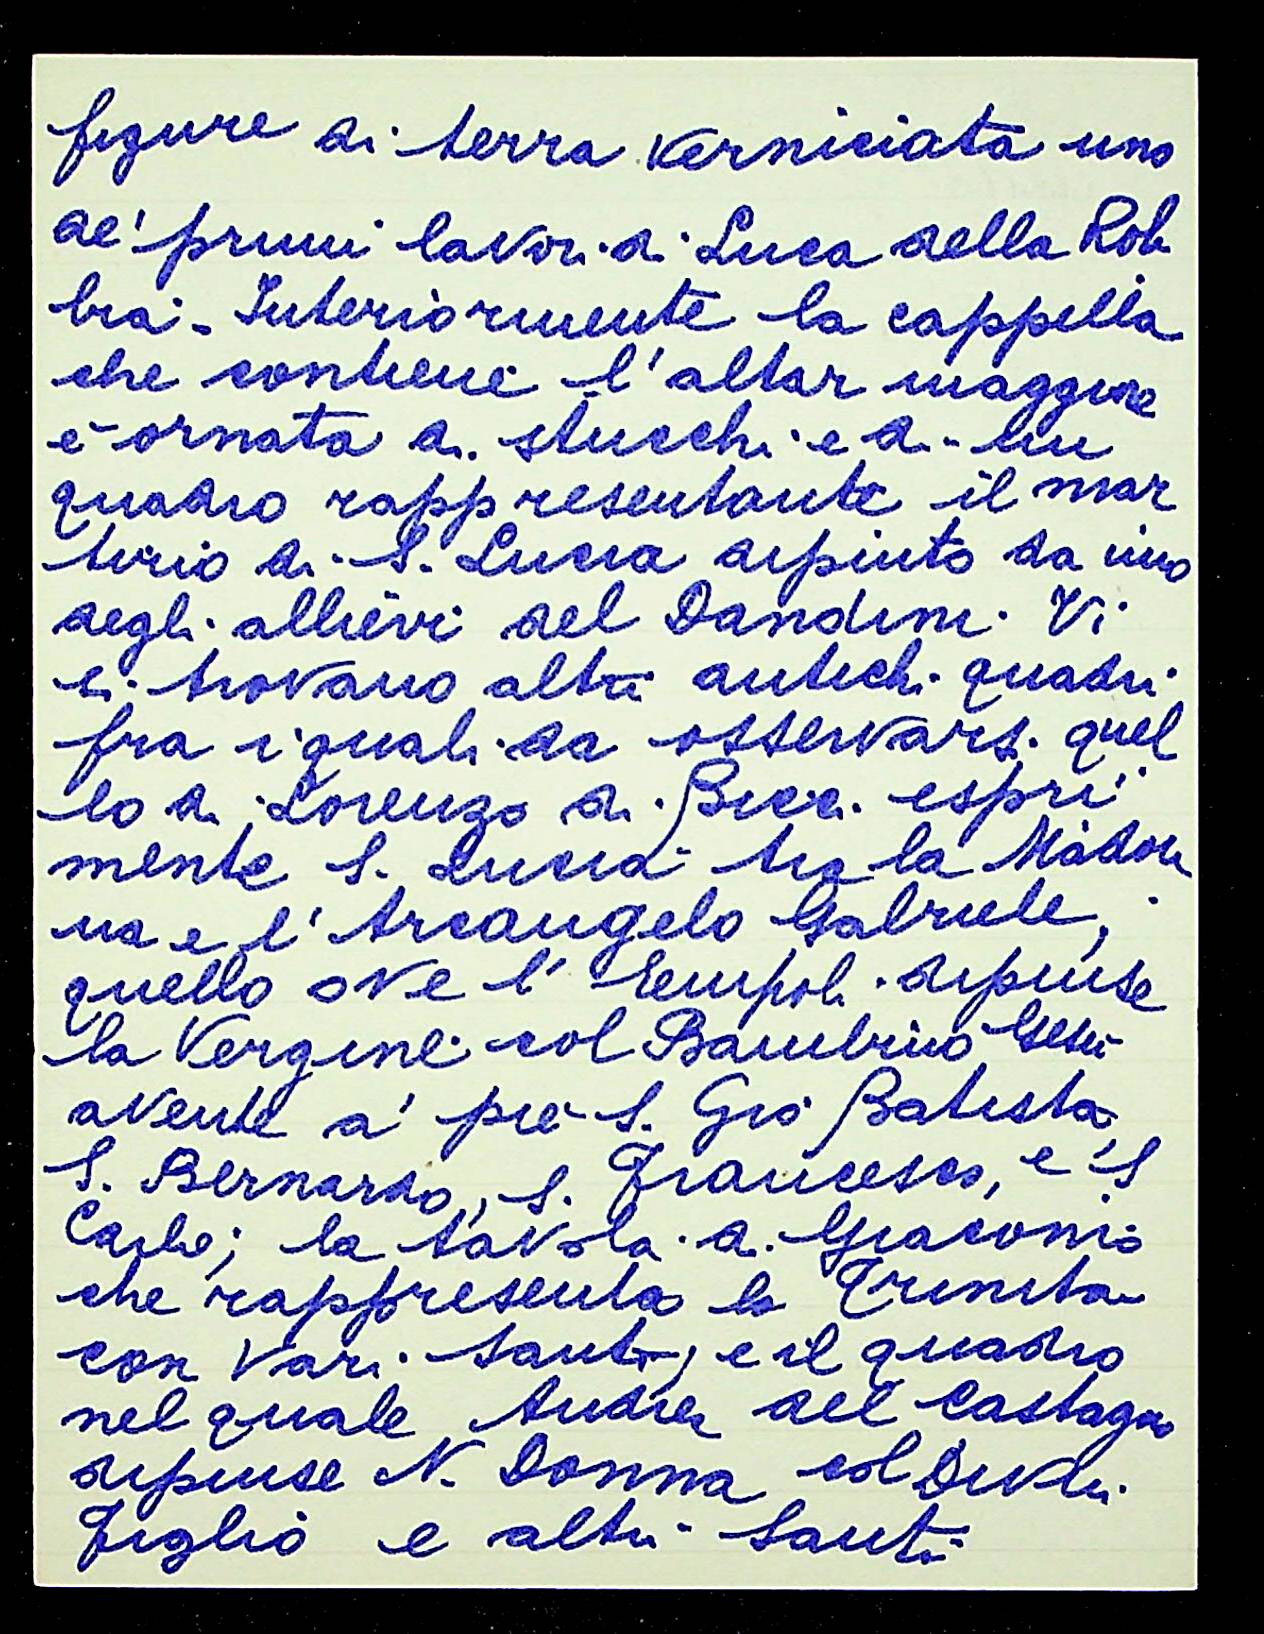 figure di terra verniciata uno
de' primi lavori di Luca della Rob
bia. Interiormente la cappella
che contiene l'altar maggiore
è ornata di stucchi e di un
quadro rappresentante il mar
tirio di S. Lucia dipinto da uno
degli allievi del Dandini. Vi
si trovano altri antichi quadri
fra i quali da osservarsi quel
lo di Lorenzo di Bicci espri
mente S. Lucia tra la Madon
na e l'Arcangelo Gabriele,
quello ove l'Empoli dipinse
la Vergine col Bambino Gesù
avente a' piè S. Gio Batista,
S. Bernardo, S. Francesco, e S
Carlo; la tavola di Giacomo
che rappresenta la Trinita
con vari Santi; e il quadro
nel quale Andrea del Castagno
dipinse N. Donna col Divin
Figlio e altri Santi